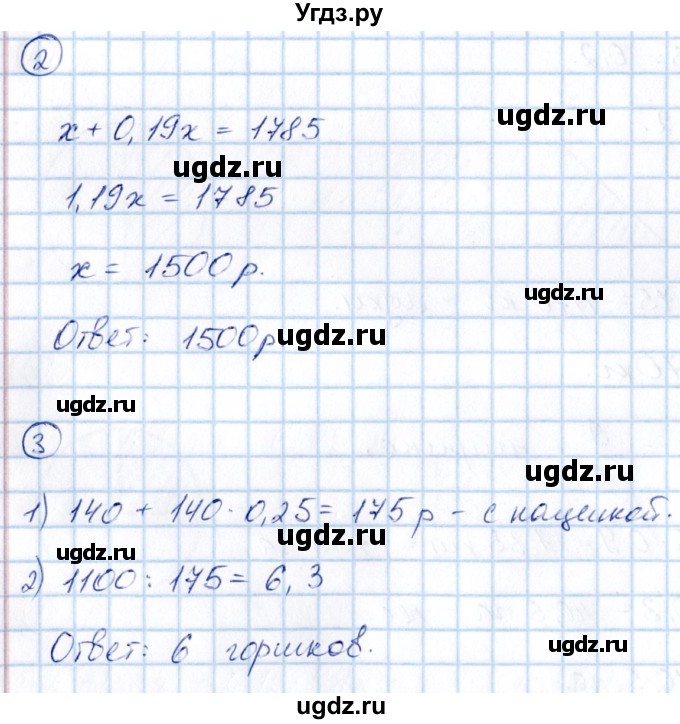 Угдз.ру
2
x + 0,19x = 1785
ugdz.ru
ugdz.ru
1,19x = 1785
x = 1500 р.
ugdz.ru
Ответ: 1500р
ugdz.ru
ugdz.ru
3
ugdz.ru
1) 140 + 140 · 0,25 = 175 р - с наценкой.
ugdz.ru
ugdz.ru
2) 1100 : 175 = 6,3
Ответ: 6 горшков.
ugdz.ru
ugdz.ru